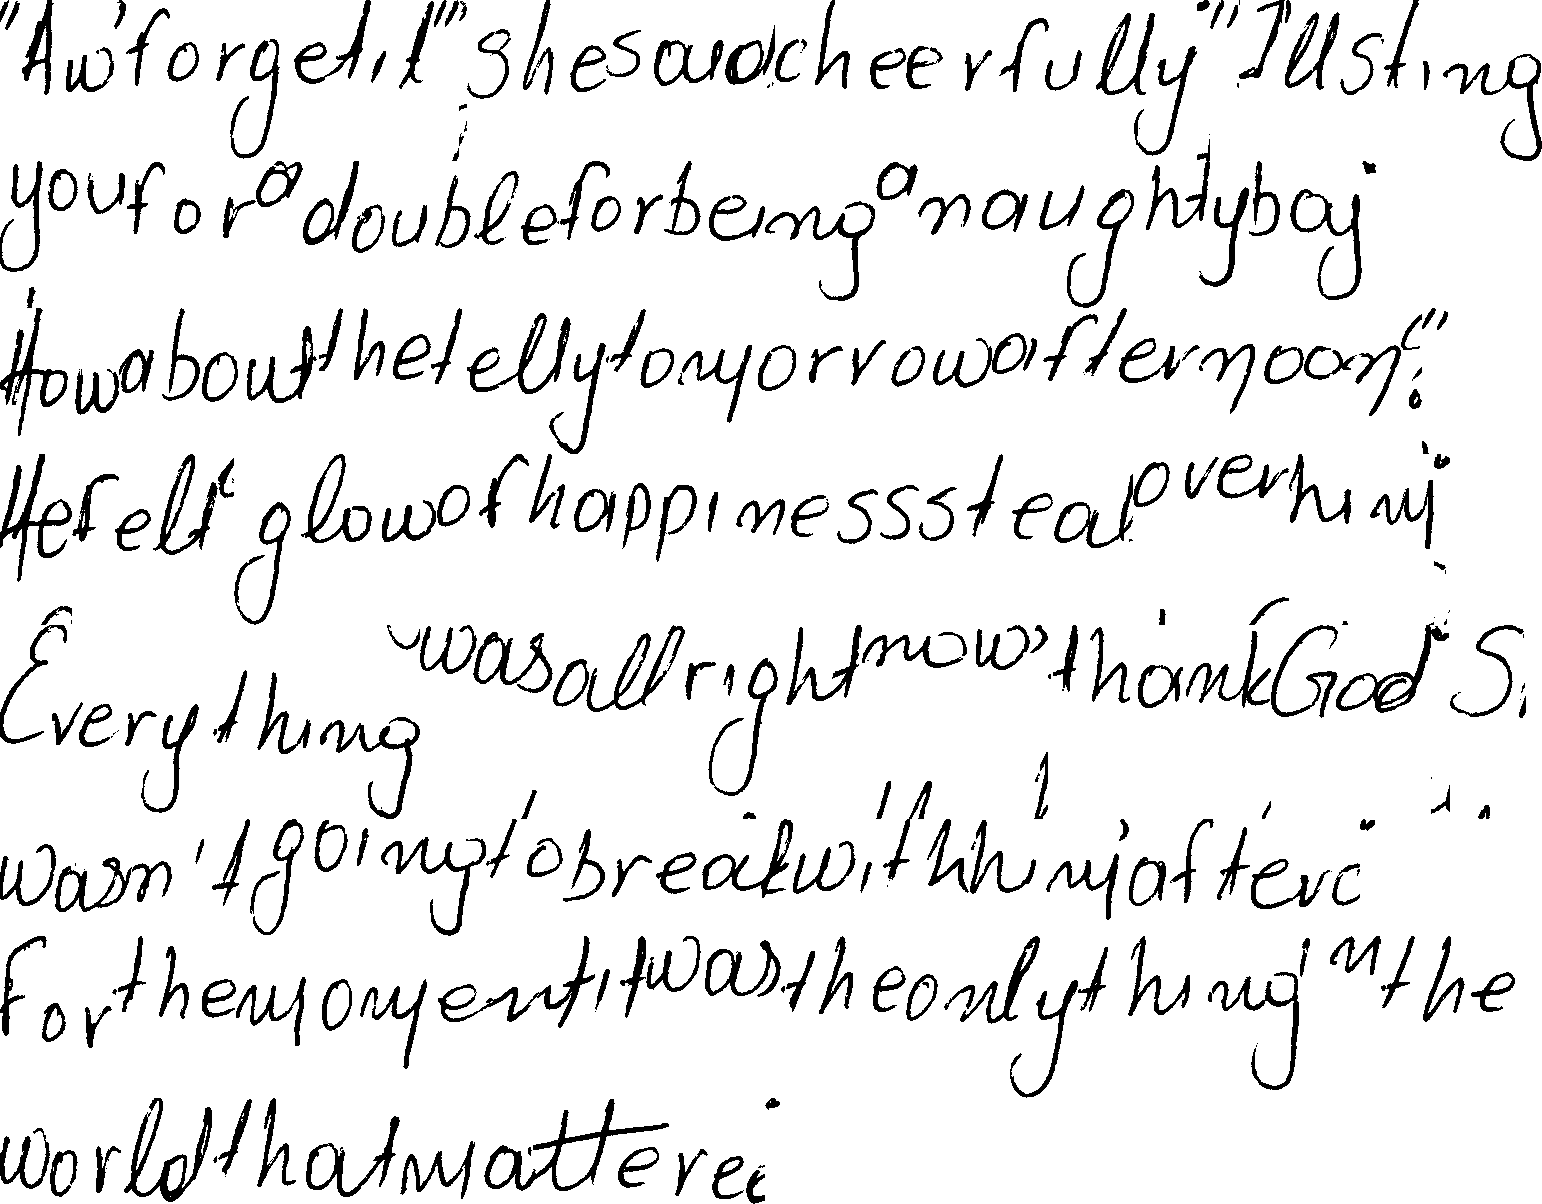 "Aw forget it" she said cheerfully "I'll sting
you for a double for being a naughty boy
How about the telly tomorrow afternoon?"
He felt glow of happiness steal over him
Everything was all right now thank God Si
wasn't going to break with him after
For the moment it was the only thing in the
world that mattere